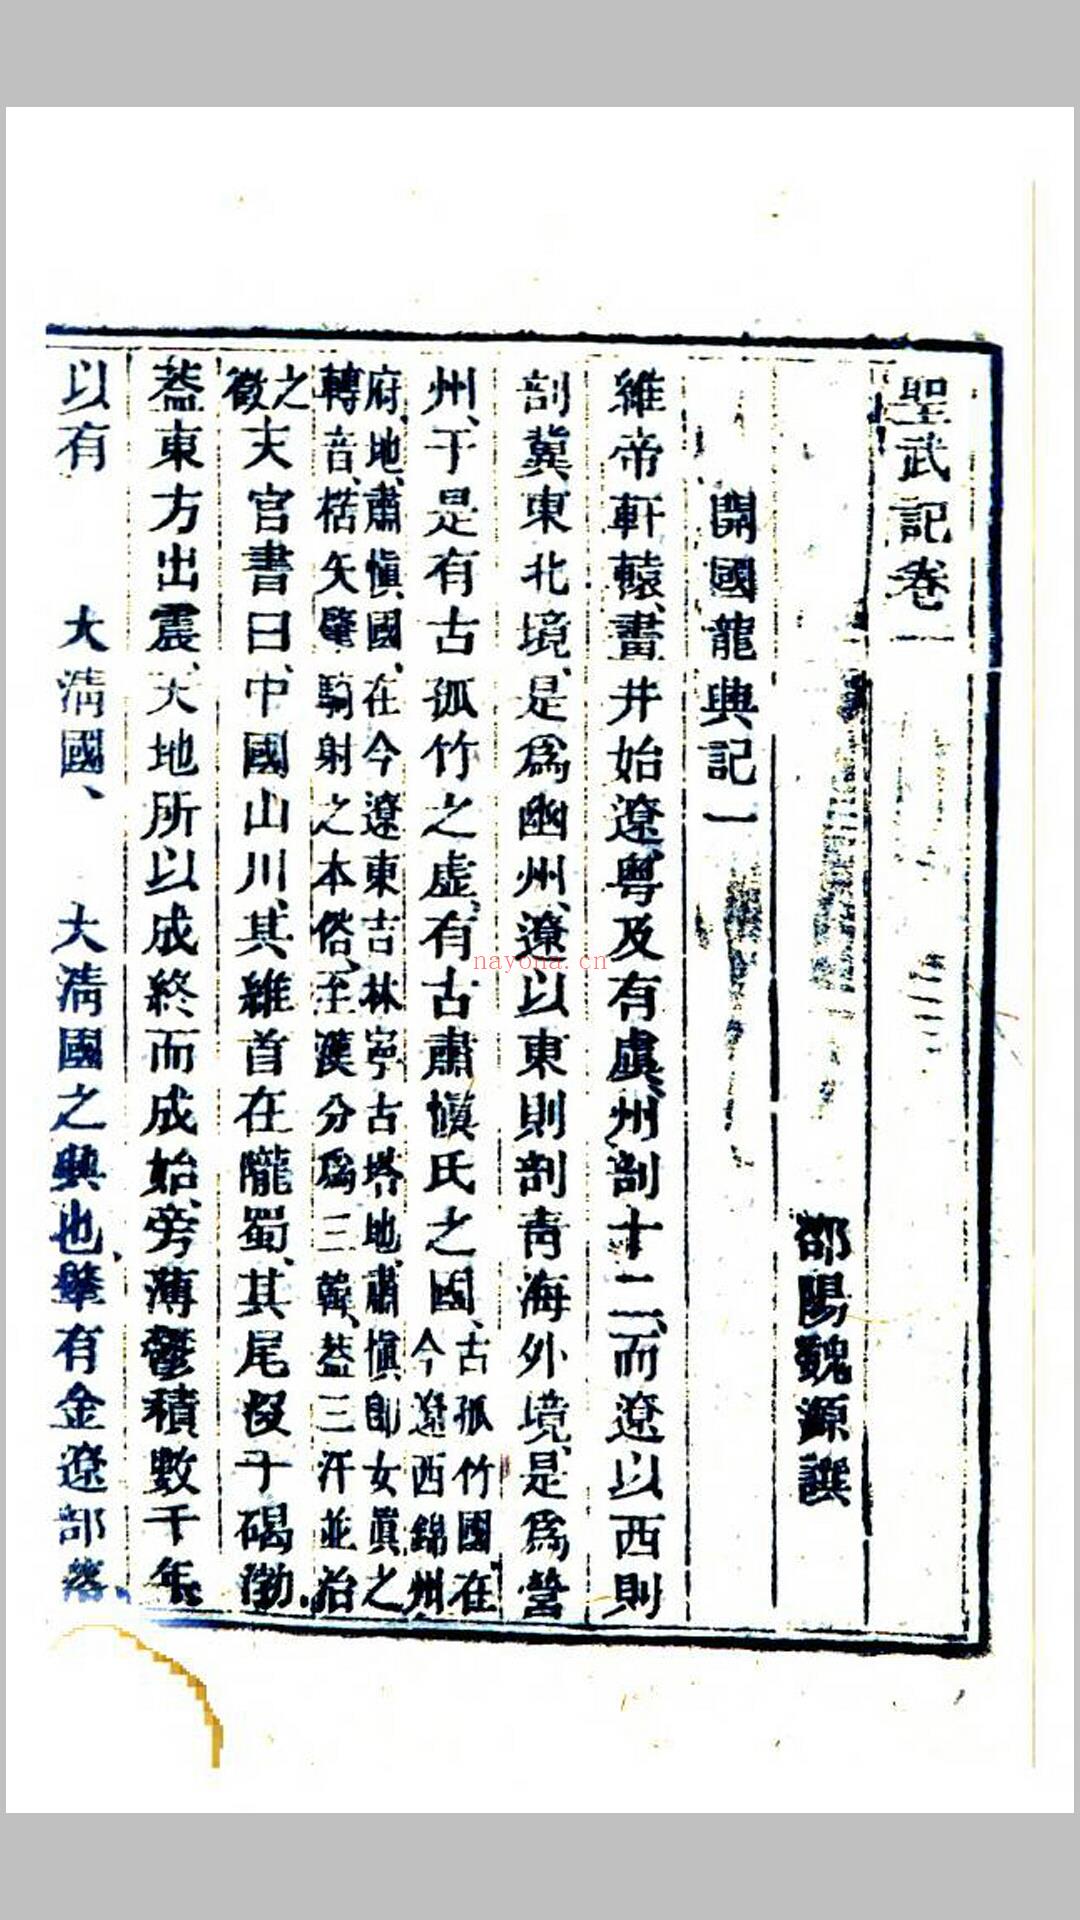 聖武記卷一
邵陽魏源譔
開國龍興記一
維帝軒轅、畫井始遼、粤及有虞、州剖十二、而遼以西則
剖冀東北境、是爲幽州、遼以東則剖青海外境、是爲營
州、于是有古孤竹之虛、有古肅愼氏之國、古孤竹國在今遼西錦州
府、地、肅愼國、在今遼東吉林寧古塔地、肅愼卽女眞之轉音、楛矢肇騎射之本俗、至漢分爲三韓、葢三汗並治
之徵天官書曰、中國山川、其維首在隴蜀、其尾没于碣渤、
葢東方出震、天地所以成終而成始、旁薄鬱積數千年、
以有 大清國、 大清國之興也、肇有金遼部落、
nayona.cn